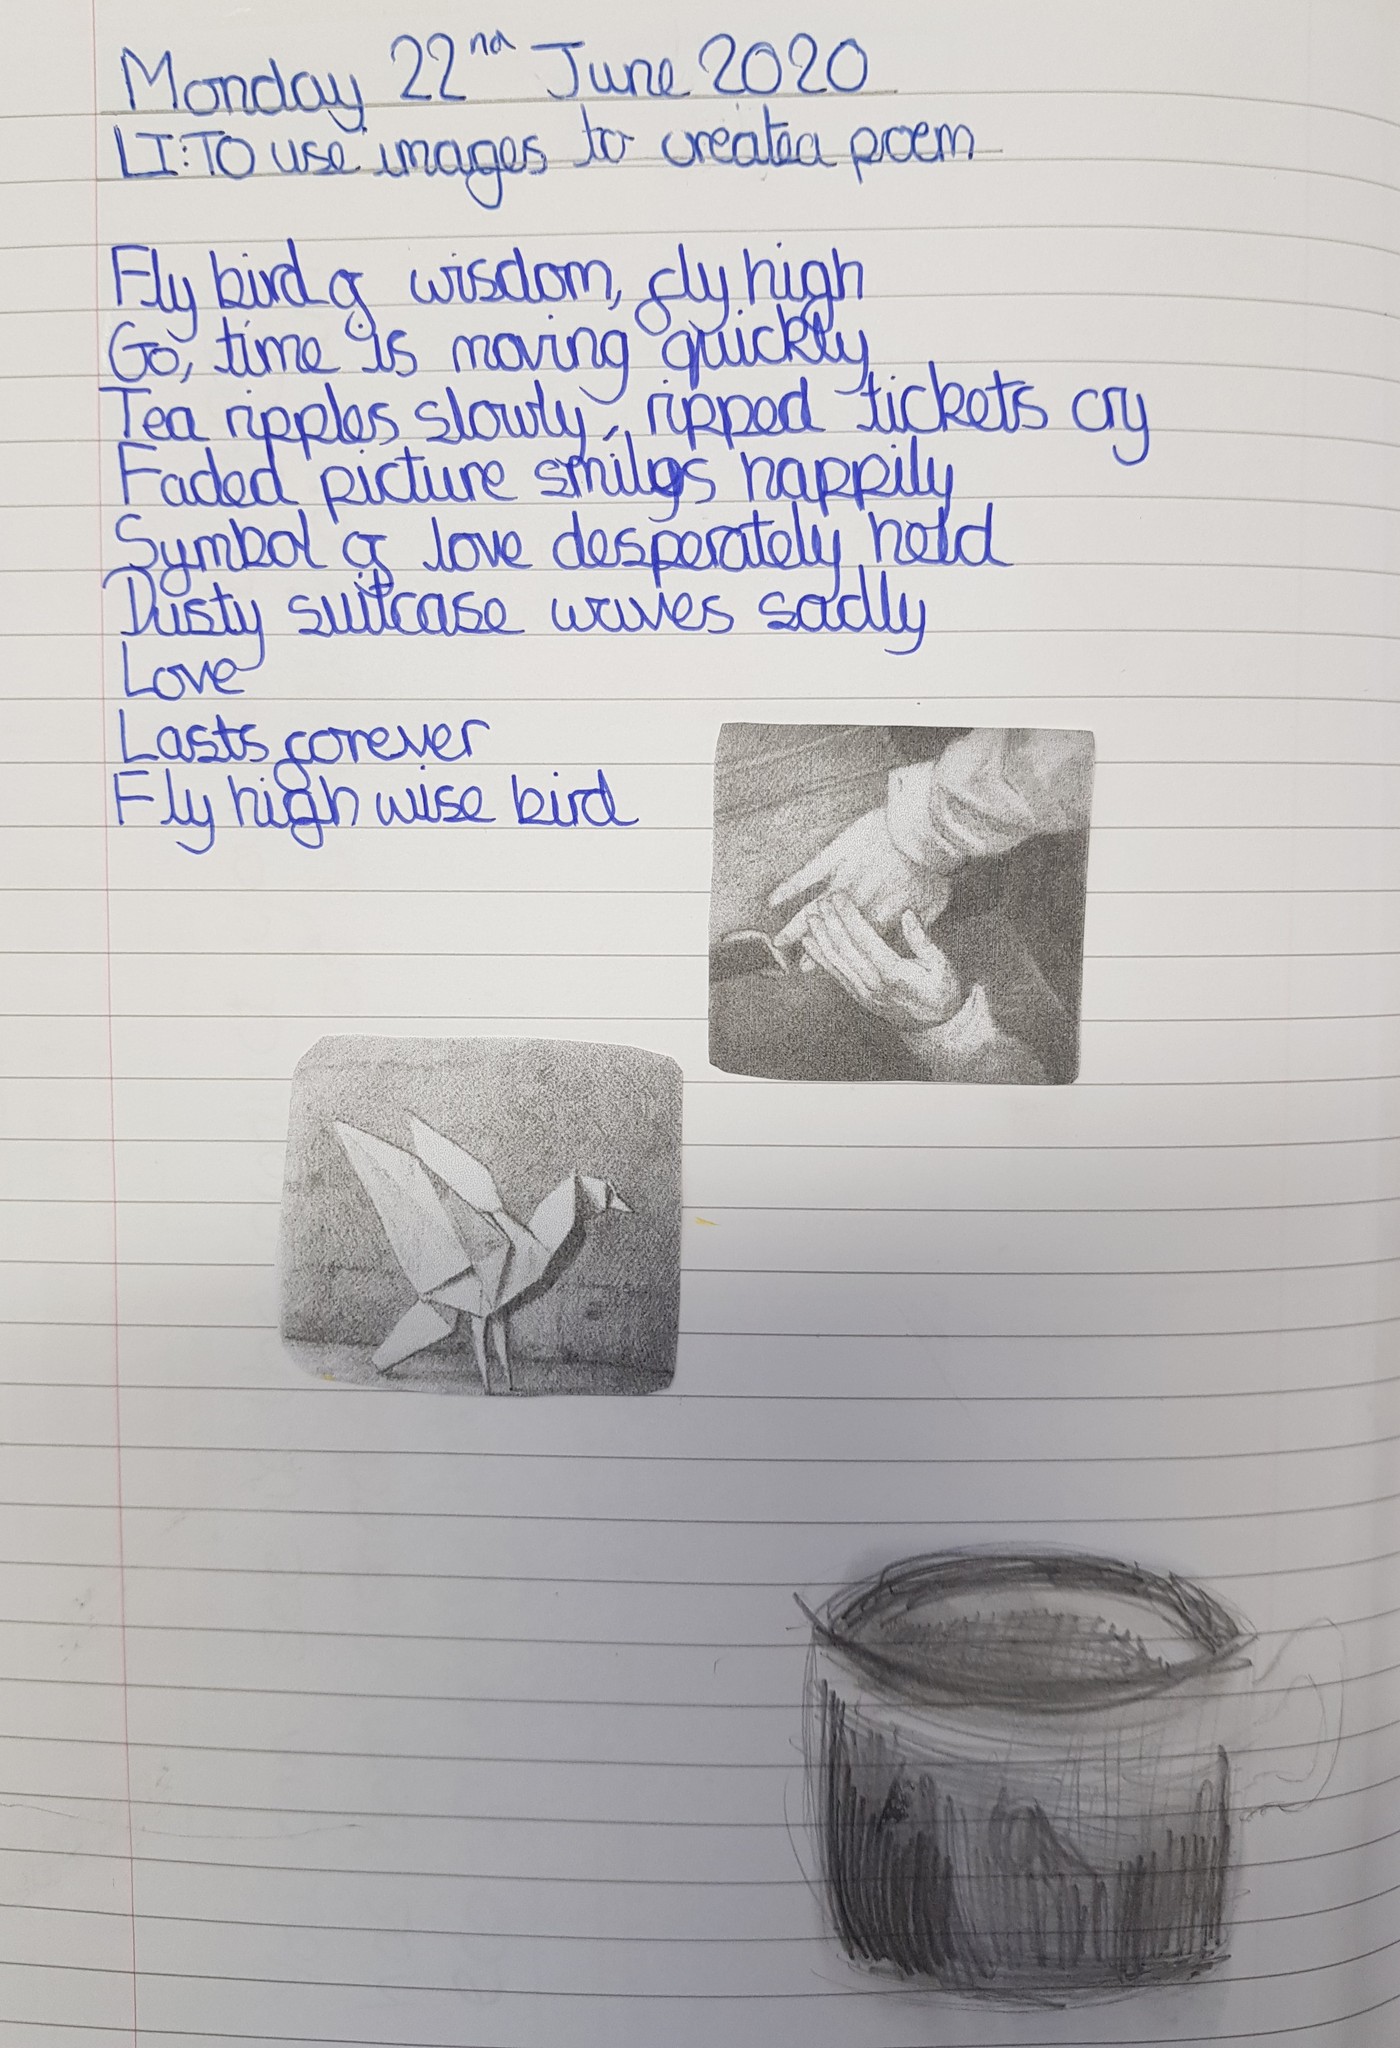 Monday 22nd June 2020
LI: TO use images to create a poem
Fly bird of wisdom, fly high
Go, time is moving quickly
Tea ripples slowly, ripped tickets cry
Faded picture smiles happily
Symbol of love desperately held
Dusty suitcase waves sadly
Love
Lasts forever
Fly high wise bird